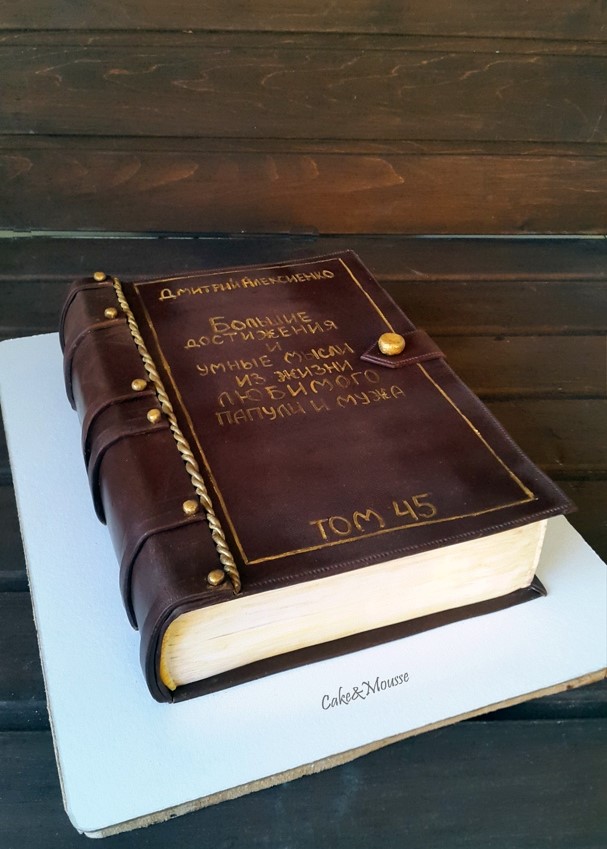 Дмитрий Алексиенко
Большие
достижения
и
умные мысли
из жизни
любимого
папули и мужа
ТОМ 45
Cake&Mousse